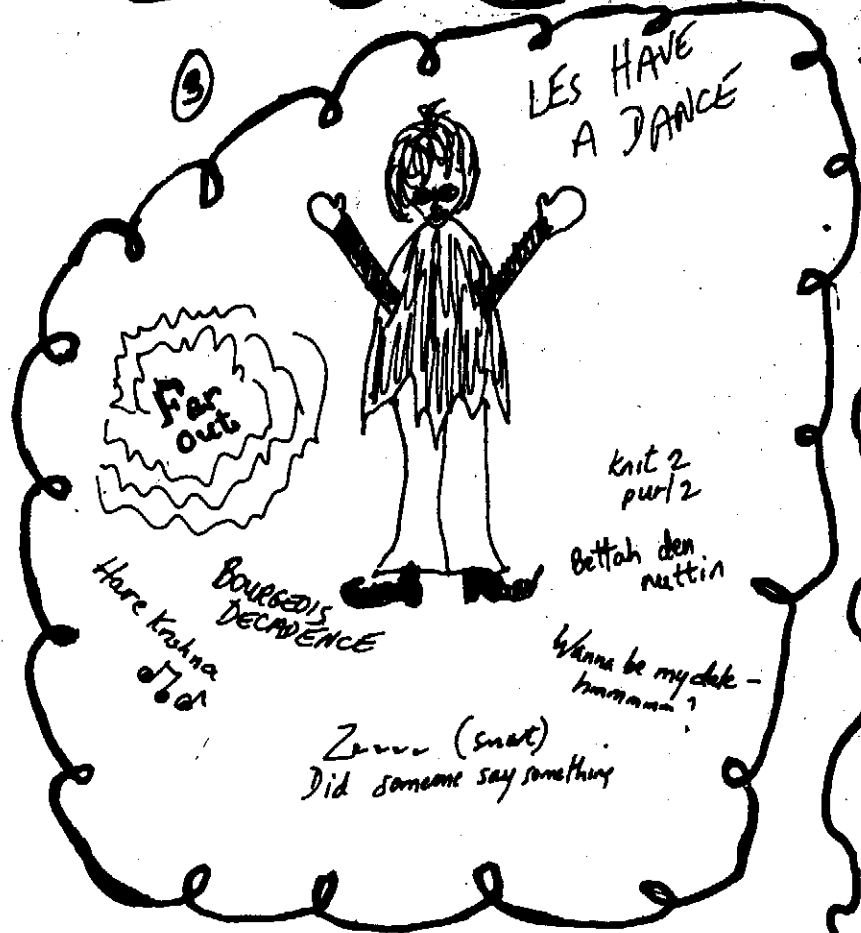 3
LES HAVE
A DANCE
Far
out
knit 2
purl 2
Bettah den
nuttin
Hare Krishna
BOURGEOIS
DECADENCE
Wanna be my date -
hmmmmm?
Zzzzz (snort)
Did someone say something